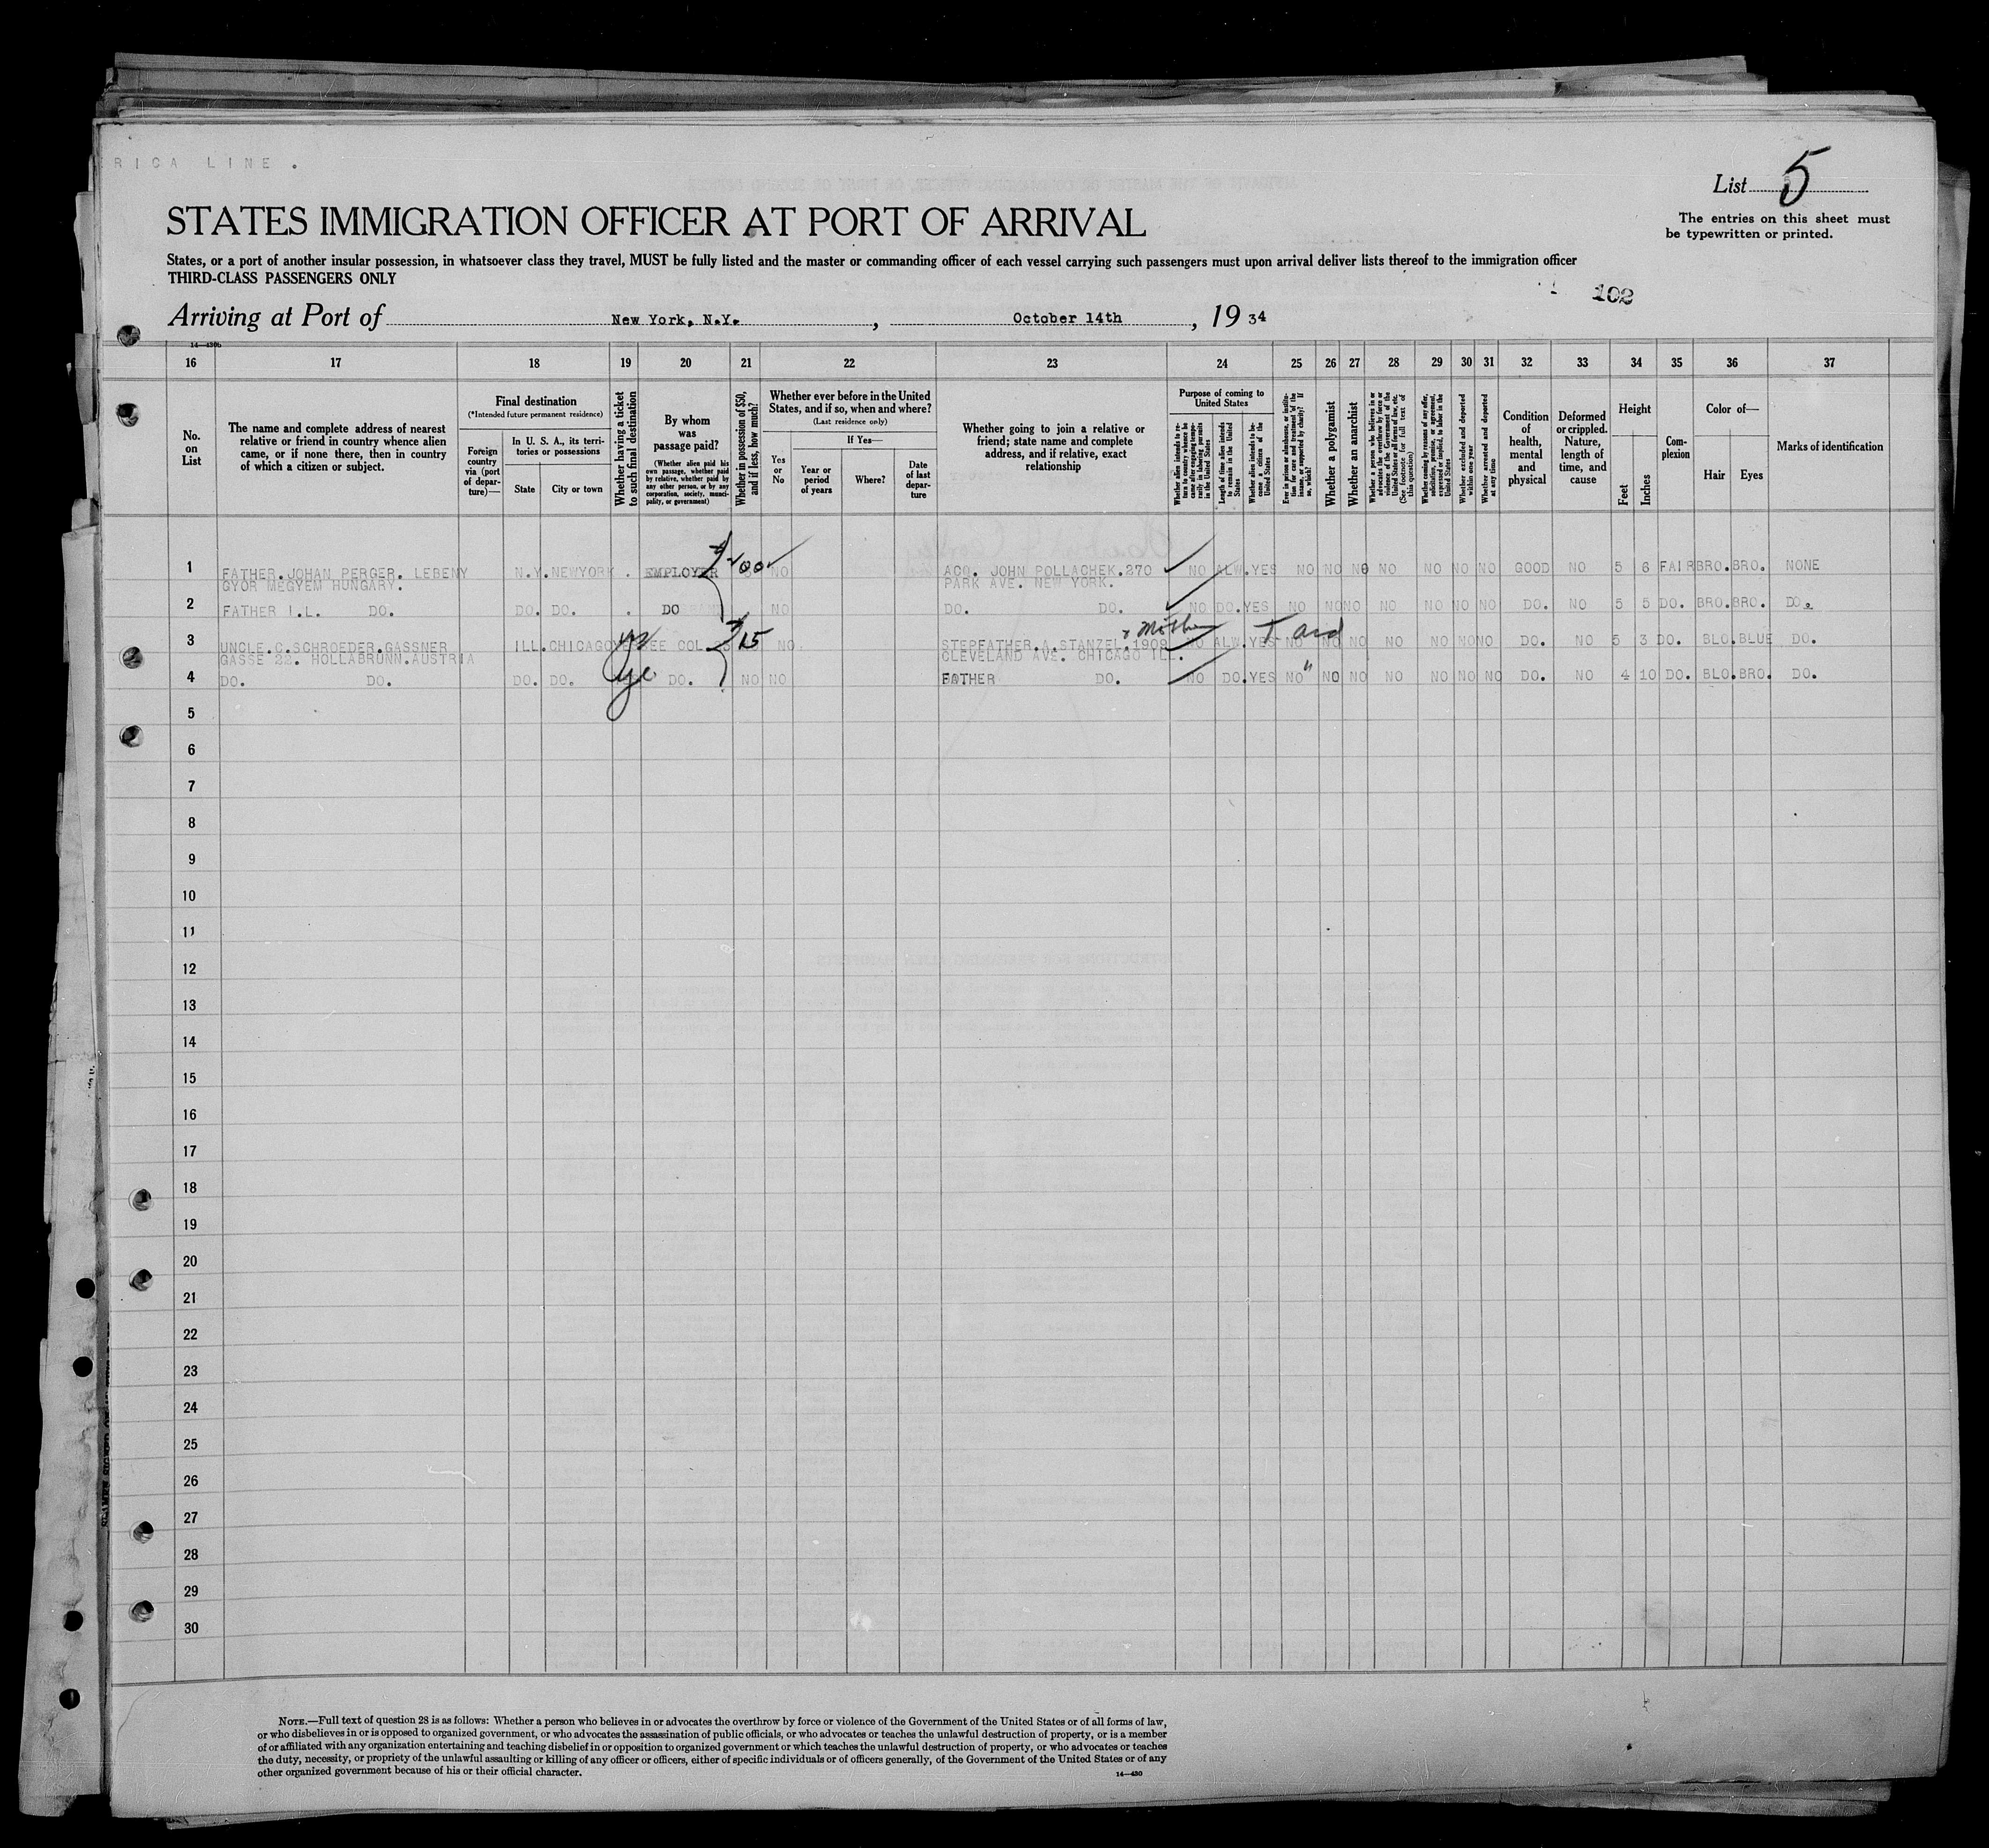 RICA LINE.
List 5
STATES IMMIGRATION OFFICER AT PORT OF ARRIVAL
The entries on this sheet must
be typewritten or printed.
States, or a port of another insular possession, in whatsoever class they travel, MUST be fully listed and the master or commanding officer of each vessel carrying such passengers must upon arrival deliver lists thereof to the immigration officer
THIRD-CLASS PASSENGERS ONLY
102
Arriving at Port of New York, N.Y. , October 14th , 19 34
14—430b
16 17 18 19 20 21 22 23 24 25 26 27 28 29 30 31 32 33 34 35 36 37
No. on List
The name and complete address of nearest relative or friend in country whence alien came, or if none there, then in country of which a citizen or subject.
Final destination
(*Intended future permanent residence)
Foreign country via (port of departure)—
In U. S. A., its territories or possessions
State
City or town
Whether having a ticket to such final destination
By whom was passage paid?
(Whether alien paid his own passage, whether paid by relative, whether paid by any other person, or by any corporation, society, municipality, or government)
Whether in possession of $50, and if less, how much?
Whether ever before in the United States, and if so, when and where?
(Last residence only)
Yes or No
If Yes—
Year or period of years
Where?
Date of last departure
Whether going to join a relative or friend; state name and complete address, and if relative, exact relationship
Purpose of coming to United States
Whether alien intends to return to country whence he came after engaging temporarily in laboring pursuits in the United States
Length of time alien intends to remain in the United States
Whether alien intends to become a citizen of the United States
Ever in prison or almshouse, or institution for care and treatment of the insane, or supported by charity? If so, which?
Whether a polygamist
Whether an anarchist
Whether a person who believes in or advocates the overthrow by force or violence of the Government of the United States or all forms of law, etc. (See footnote for full text of this question)
Whether coming by reasons of any offer, solicitation, promise, or agreement, expressed or implied, to labor in the United States
Whether excluded and deported within one year
Whether arrested and deported at any time
Condition of health, mental and physical
Deformed or crippled. Nature, length of time, and cause
Height
Feet
Inches
Complexion
Color of—
Hair
Eyes
Marks of identification
1 FATHER.JOHAN PERGER. LEBENY N.Y. NEWYORK . EMPLOYER 400 NO ACQ. JOHN POLLACHEK.270 NO ALW. YES NO NO NO NO NO NO NO GOOD NO 5 6 FAIR BRO. BRO. NONE
GYOR MEGYEM HUNGARY. PARK AVE. NEW YORK.
2 FATHER I.L. DO. DO. DO. . DO NO DO. DO. NO DO. YES NO NO NO NO NO NO NO DO. NO 5 5 DO. BRO. BRO. DO.
Mother
3 UNCLE.C.SCHROEDER.GASSNER ILL. CHICAGO SEE COL. 15 NO. STEPFATHER.A.STANZEL.1909 NO ALW. YES NO NO NO NO NO NO NO DO. NO 5 3 DO. BLO. BLUE DO.
GASSE 22. HOLLABRUNN.AUSTRIA CLEVELAND AVE. CHICAGO ILL.
4 DO. DO. DO. DO. DO. NO NO FATHER DO. NO DO. YES NO " NO NO NO NO NO NO DO. NO 4 10 DO. BLO. BRO. DO.
5
6
7
8
9
10
11
12
13
14
15
16
17
18
19
20
21
22
23
24
25
26
27
28
29
30
NOTE.—Full text of question 28 is as follows: Whether a person who believes in or advocates the overthrow by force or violence of the Government of the United States or of all forms of law,
or who disbelieves in or is opposed to organized government, or who advocates the assassination of public officials, or who advocates or teaches the unlawful destruction of property, or is a member
of or affiliated with any organization entertaining and teaching disbelief in or opposition to organized government or which teaches the unlawful destruction of property, or who advocates or teaches
the duty, necessity, or propriety of the unlawful assaulting or killing of any officer or officers, either of specific individuals or of officers generally, of the Government of the United States or of any
other organized government because of his or their official character.
14—430